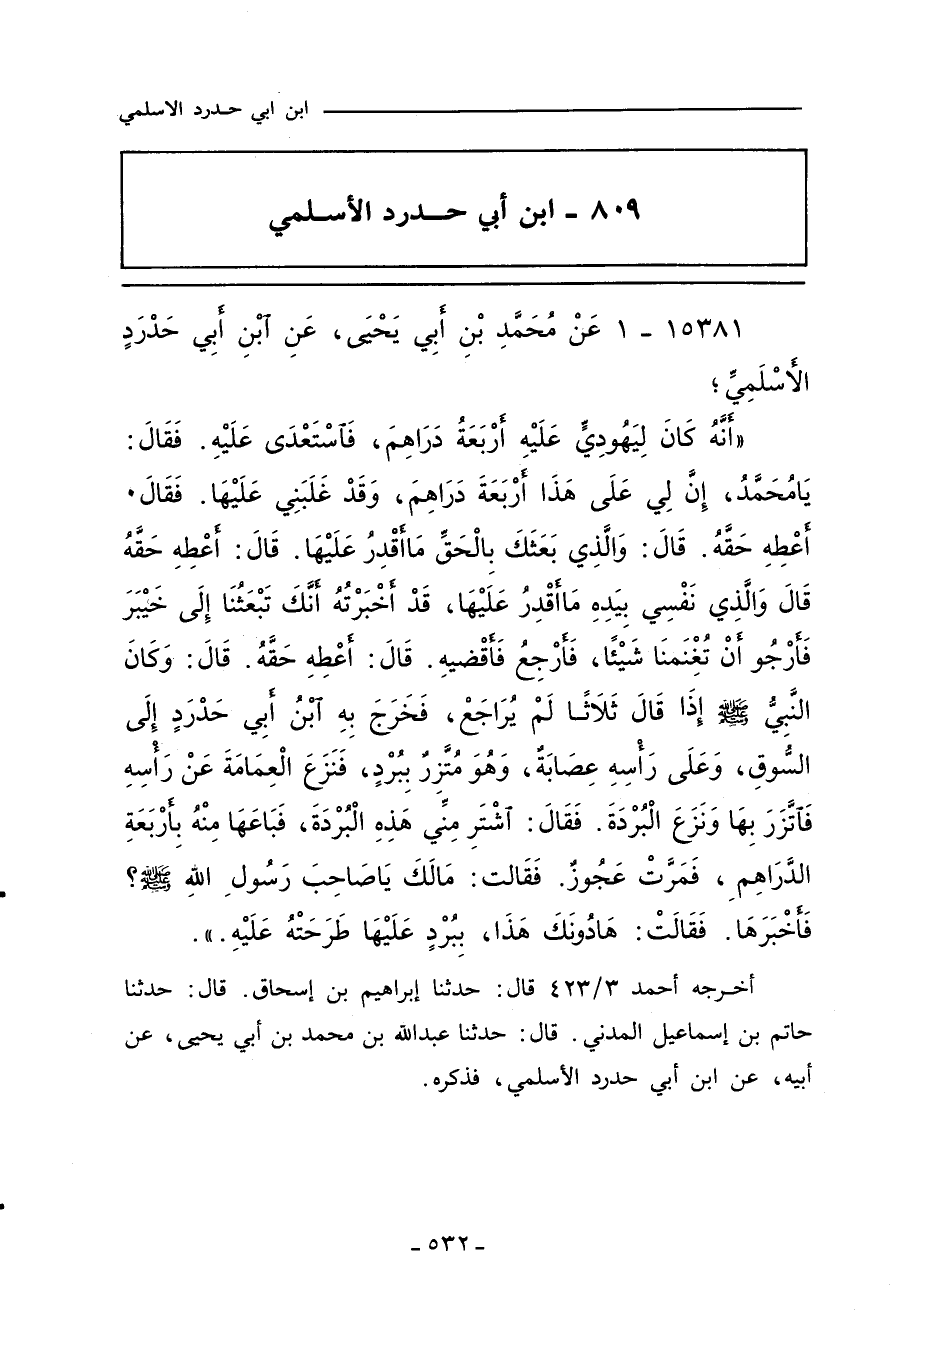 ابن ابي حدرد الاسلمي
٨٠٩ - ابن أبي حدرد الأسلمي
١٥٣٨١ - ١ عَنْ مُحَمَّدِ بْنِ أَبِي يَحْيَى، عَنِ ٱبْنِ أَبِي حَدْرَدٍ
الأَسْلَمِيِّ؛
«أَنَّهُ كَانَ لِيَهُودِيٍّ عَلَيْهِ أَرْبَعَةُ دَرَاهِمَ، فَٱسْتَعْدَى عَلَيْهِ. فَقَالَ:
يَامُحَمَّدُ، إِنَّ لِي عَلَى هَذَا أَرْبَعَةَ دَرَاهِمَ، وَقَدْ غَلَبَنِي عَلَيْهَا. فَقَالَ٠
أَعْطِهِ حَقَّهُ. قَالَ: وَالَّذِي بَعَثَكَ بِالْحَقِّ مَاأَقْدِرُ عَلَيْهَا. قَالَ: أَعْطِهِ حَقَّهُ
قَالَ وَالَّذِي نَفْسِي بِيَدِهِ مَاأَقْدِرُ عَلَيْهَا، قَدْ أَخْبَرْتُهُ أَنَّكَ تَبْعَثُنَا إِلَى خَيْبَرَ
فَأَرْجُو أَنْ تُغْنِمَنَا شَيْئًا، فَأَرْجِعُ فَأَقْضِيهِ. قَالَ: أَعْطِهِ حَقَّهُ. قَالَ: وَكَانَ
النَّبِيُّ ﷺ إِذَا قَالَ ثَلَاثًا لَمْ يُرَاجَعْ، فَخَرَجَ بِهِ ٱبْنُ أَبِي حَدْرَدٍ إِلَى
السُّوقِ، وَعَلَى رَأْسِهِ عِصَابَةٌ، وَهُوَ مُتَّزِرٌ بِبُرْدٍ، فَنَزَعَ الْعِمَامَةَ عَنْ رَأْسِهِ
فَٱتَّزَرَ بِهَا وَنَزَعَ الْبُرْدَةَ. فَقَالَ: ٱشْتَرِ مِنِّي هَذِهِ الْبُرْدَةَ، فَبَاعَهَا مِنْهُ بِأَرْبَعَةِ
الدَّرَاهِمِ، فَمَرَّتْ عَجُوزٌ. فَقَالت: مَالَكَ يَاصَاحِبَ رَسُولِ اللهِ ﷺ؟
فَأَخْبَرَهَا. فَقَالَتْ: هَادُونَكَ هَذَا، بِبُرْدٍ عَلَيْهَا طَرَحَتْهُ عَلَيْهِ.».
أخرجه أحمد ٤٢٣/٣ قال: حدثنا إبراهيم بن إسحاق. قال: حدثنا
حاتم بن إسماعيل المدني. قال: حدثنا عبدالله بن محمد بن أبي يحيى، عن
أبيه، عن ابن أبي حدرد الأسلمي، فذكره.
- ٥٣٢ -